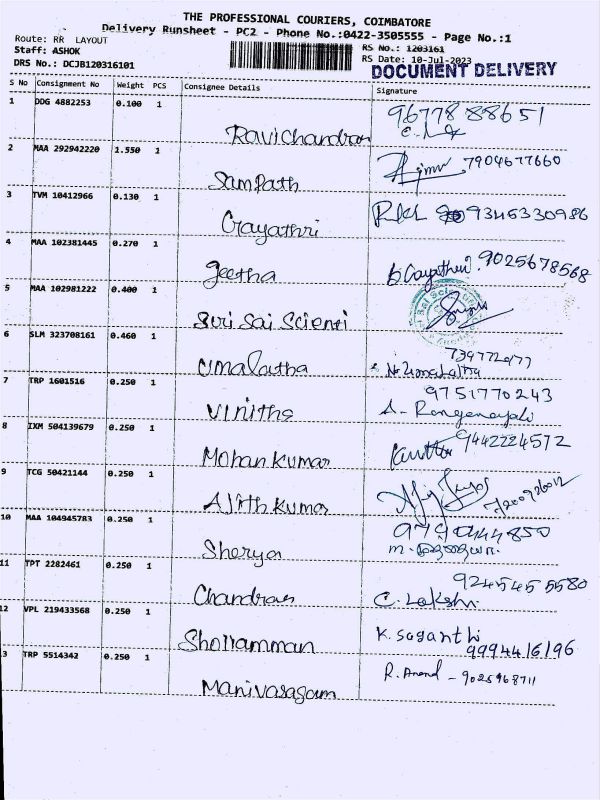 THE PROFESSIONAL COURIERS, COIMBATORE
Delivery Runsheet - PC2 - Phone No.:0422-3505555 - Page No.:1
Route: RR LAYOUT
RS No.: 1203161
Staff: ASHOK
RS Date: 10-Jul-2023
DRS No.: DCJB120316101
DOCUMENT DELIVERY
S No Consignment No Weight PCS Consignee Details Signature
1 DDG 4882253 0.100 1 Ravichandran 9677888651
2 MAA 292942220 1.550 1 Sampath 7904677660
3 TVM 10412966 0.130 1 Gayathri 9345330986
4 MAA 102381445 0.270 1 Geetha B. Gayathri. 9025678568
5 MAA 102981222 0.400 1 Suri Sai Scienti
6 SLM 323708161 0.460 1 Umalatha
7 TRP 1601516 0.250 1 Vinitha 9751770243
A. Ranganayaki
8 IXM 504139679 0.250 1 Mohan Kumar 9442224572
9 TCG 50421144 0.250 1 Ajith Kumar
10 MAA 104945783 0.250 1 Sherya
11 TPT 2282461 0.250 1 Chandran 9245455580
C. Lakshmi
12 VPL 219433568 0.250 1 Shollamman K. Suganthi
9994416196
3 TRP 5514342 0.250 1 Manivasagam R. Anand - 9025968711